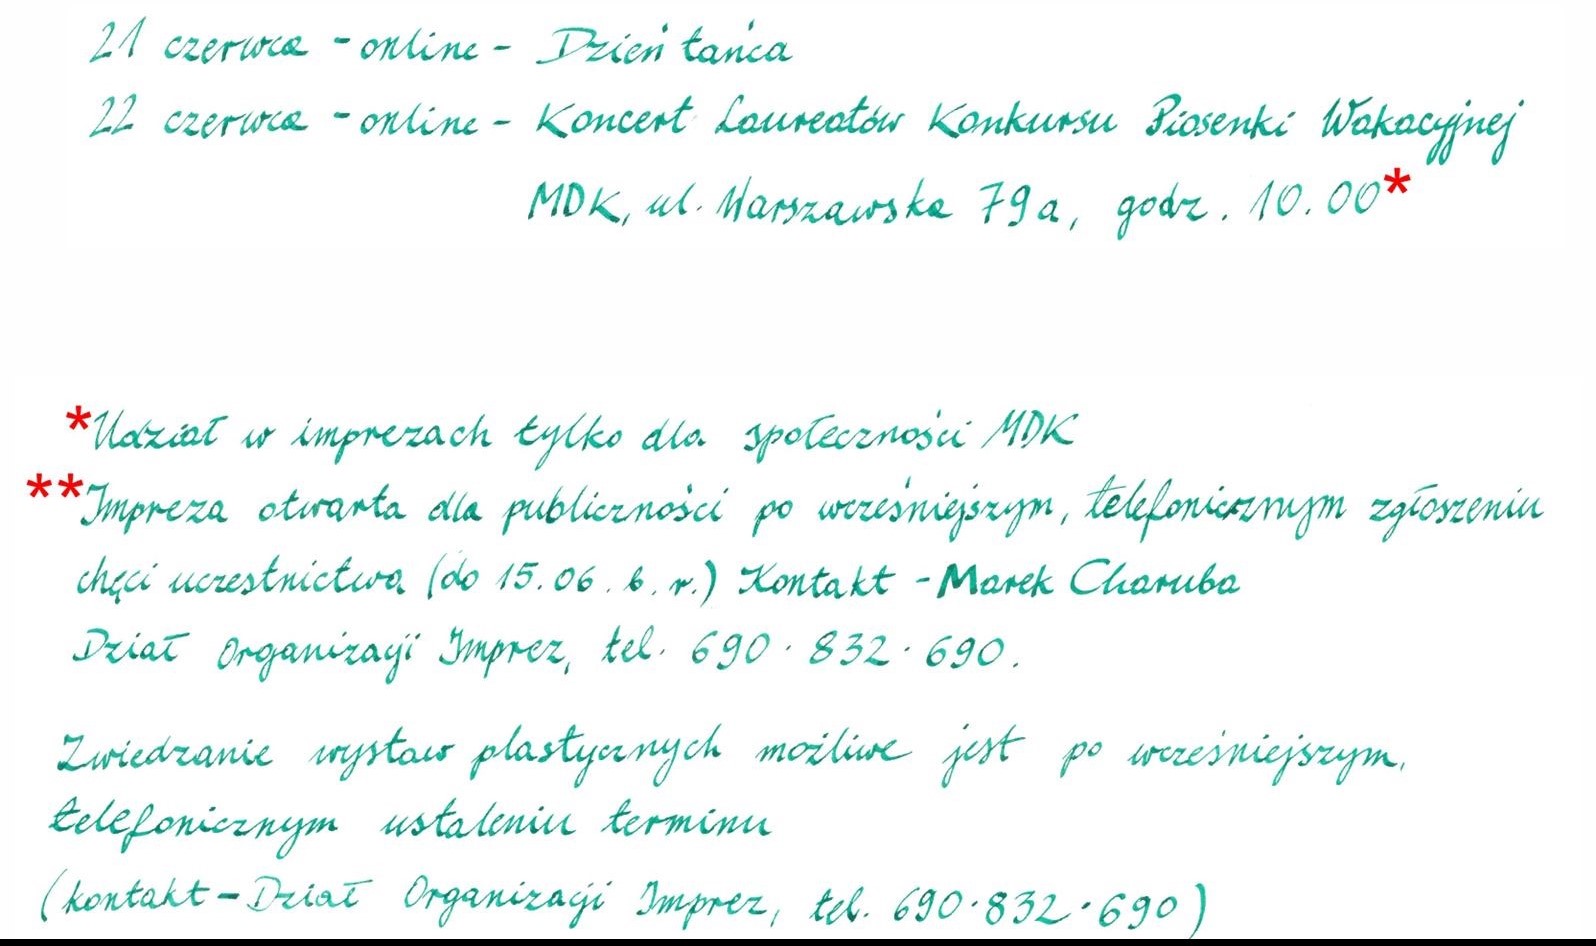 21 czerwca - online - Dzień tańca
22 czerwca - online - Koncert Laureatów Konkursu Piosenki Wakacyjnej
MDK, ul. Warszawska 79a, godz. 10.00*
*Udział w imprezach tylko dla społeczności MDK
**Impreza otwarta dla publiczności po wcześniejszym, telefonicznym zgłoszeniu
chęci uczestnictwa (do 15.06.b.r.) Kontakt - Marek Charuba
Dział Organizacji Imprez, tel. 690·832·690.
Zwiedzanie wystaw plastycznych możliwe jest po wcześniejszym,
telefonicznym ustaleniu terminu
(kontakt - Dział Organizacji Imprez, tel. 690·832·690)